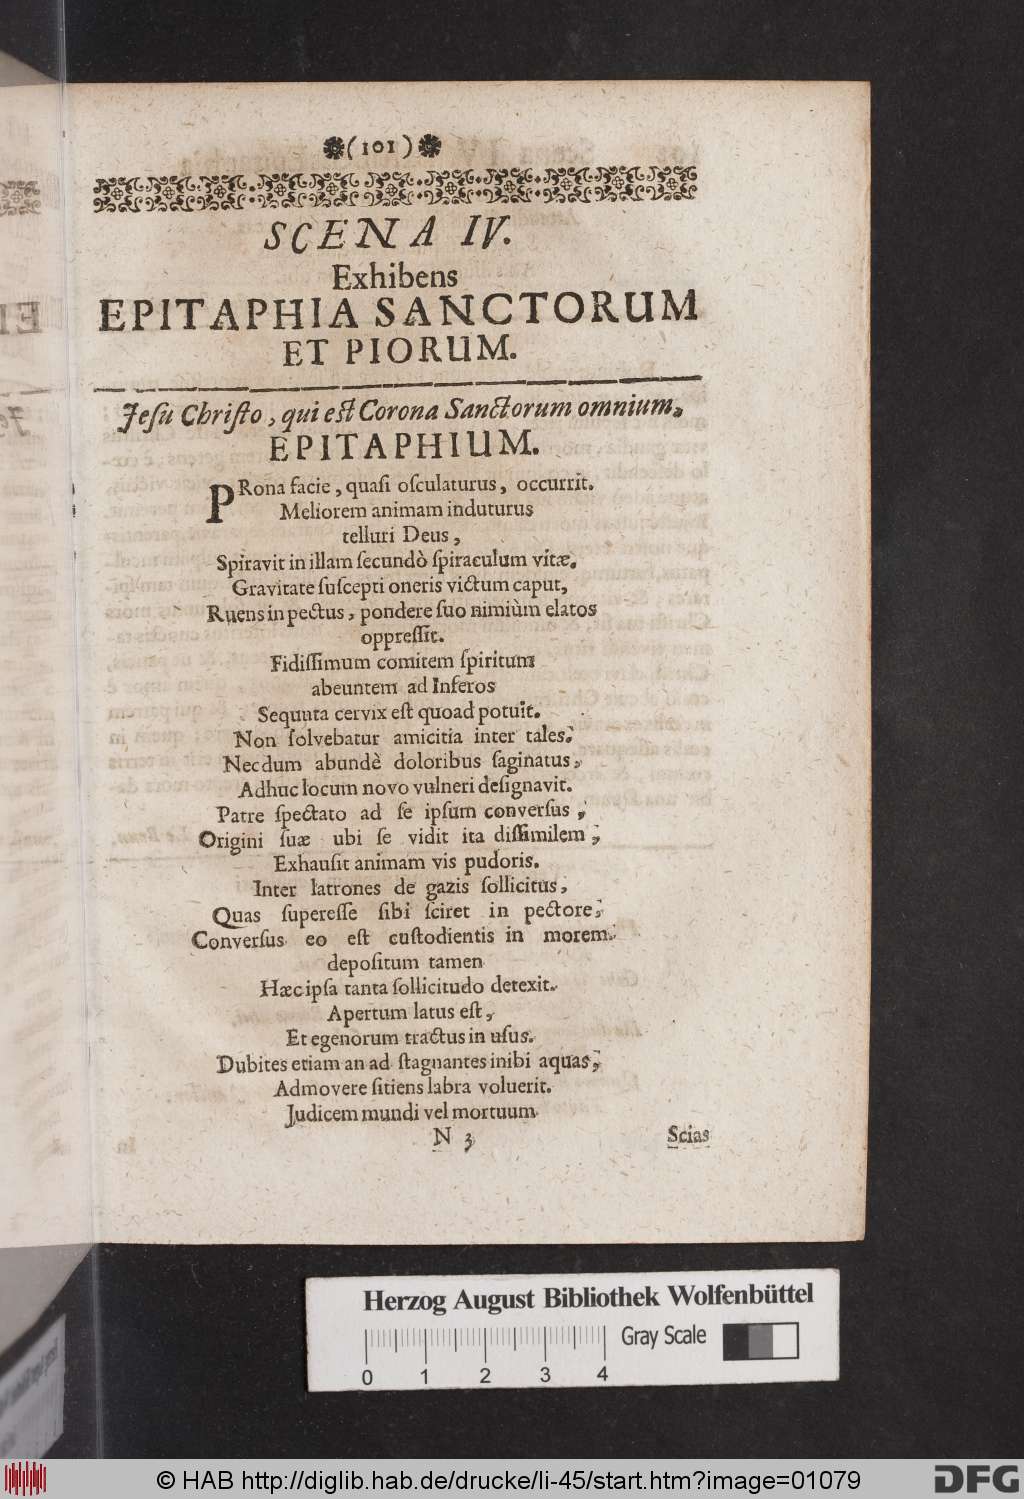 (101)
SCENA IV.
Exhibens
EPITAPHIA SANCTORUM
ET PIORUM.
Jeſu Chriſto, qui eſt Corona Sanctorum omnium,
EPITAPHIUM.
PRona facie, quaſi oſculaturus, occurrit.
Meliorem animam induturus
telluri Deus,
Spiravit in illam ſecundò ſpiraculum vitæ.
Gravitate ſuſcepti oneris victum caput,
Ruens in pectus, pondere ſuo nimiùm elatos
oppreſſit.
Fidiſſimum comitem ſpiritum
abeuntem ad Inferos
Sequuta cervix eſt quoad potuit.
Non ſolvebatur amicitia inter tales.
Necdum abundè doloribus ſaginatus,
Adhuc locum novo vulneri deſignavit.
Patre ſpectato ad ſe ipſum converſus,
Origini ſuæ ubi ſe vidit ita diſſimilem;
Exhauſit animam vis pudoris.
Inter latrones de gazis ſollicitus,
Quas ſupereſſe ſibi ſciret in pectore,
Converſus eo eſt cuſtodientis in morem.
depoſitum tamen
Hæc ipſa tanta ſollicitudo detexit.
Apertum latus eſt,
Et egenorum tractus in uſus.
Dubites etiam an ad ſtagnantes inibi aquas,
Admovere ſitiens labra voluerit.
Judicem mundi vel mortuum
N 3 Scias
Herzog August Bibliothek Wolfenbüttel
Gray Scale
0 1 2 3 4
© HAB http://diglib.hab.de/drucke/li-45/start.htm?image=01079
DFG